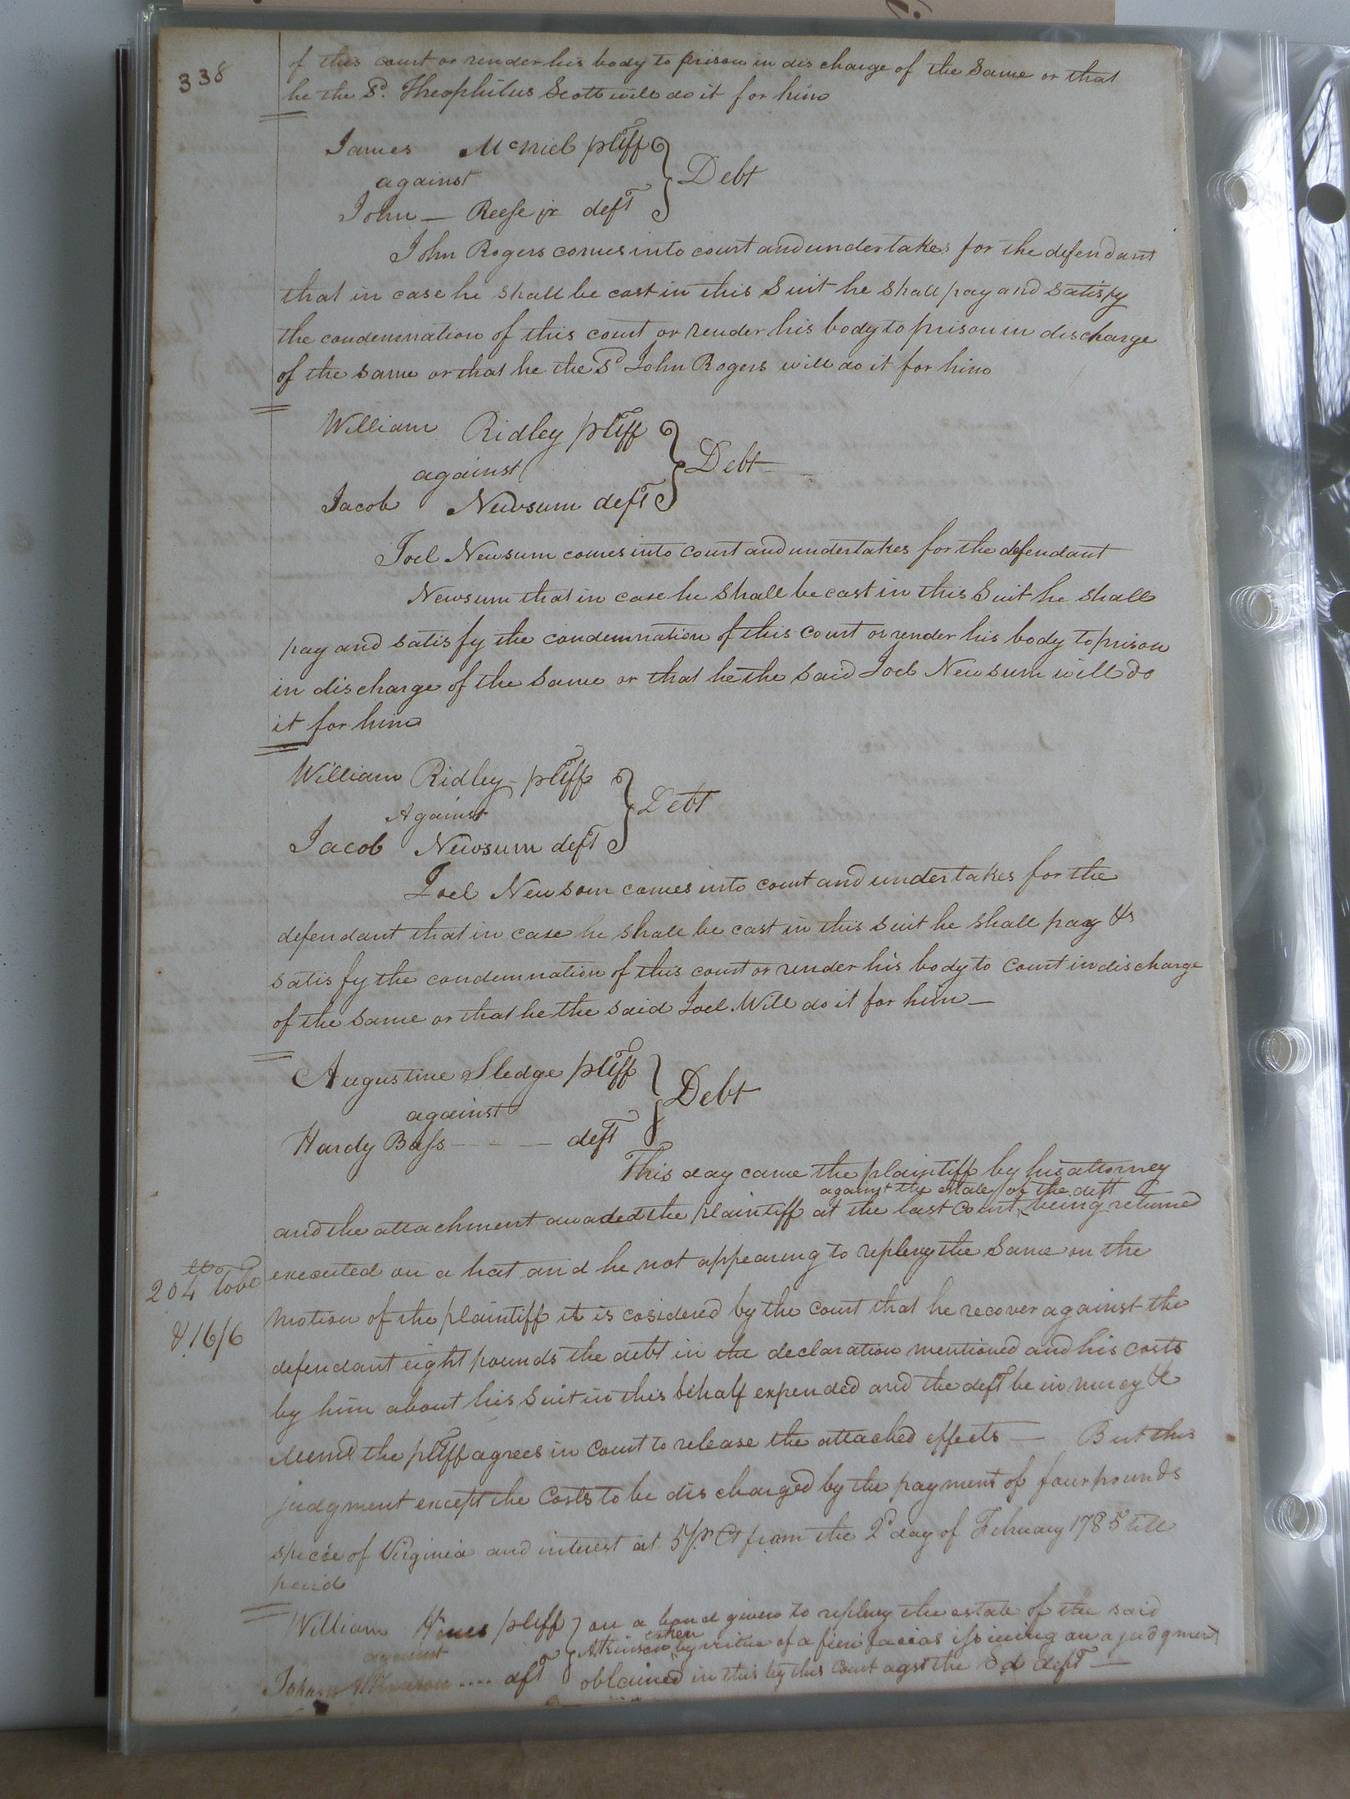 338
of this court or render his body to prison in discharge of the Same or that
he the Sd. Theophilus Scott will do it for him
James McNiel pltff
against
Debt
John — Reese jr deft
John Rogers comes into court and undertakes for the defendant
that in case he shall be cast in this Suit he shall pay and satisfy
the condemnation of this court or render his body to prison in discharge
of the same or that he the Sd John Rogers will do it for him
William Ridley pltff
against
Debt
Jacob Newsum deft
Joel Newsum comes into court and undertakes for the defendant
Newsum that in case he shall be cast in this Suit he shall
pay and satisfy the condemnation of this court or render his body to prison
in discharge of the same or that he the said Joel Newsum will do
it for him
William Ridley pltff
Against
Debt
Jacob Newsum deft
Joel Newsom comes into court and undertakes for the
defendant that in case he shall be cast in this suit he shall pay &
satisfy the condemnation of this court or render his body to Court in discharge
of the same or that he the said Joel Will do it for him —
Augustine Sledge pltff
against
Debt
Hardy Bass - - - — deft
This day came the plaintiff by his attorney
against the estate of the deft
and the attachment awaded the plaintiff at the last Court being returned
executed on a hat and he not appearing to replevy the Same on the
204 Tobo
motion of the plaintiff it is cosidered by the court that he recover against the
& 16/6
defendant eight pounds the debt in the declaration mentioned and his costs
by him about his Suit in this behalf expended and the deft be in mercy &c
Memd the pltff agrees in Court to release the attached effects — But this
judgment except the Costs to be discharged by the payment of four pounds
specie of Virginia and interest at 5 Pr Ct from the 2d day of February 1785 till
paid
William Hines pltff
on a bond given to replevy the estate of the said
against
taken
Atkinson by virtue of a fieri facias issuing on a judgment
John Atkinson .... deft
obtained in this by this Court agst the Sd deft —